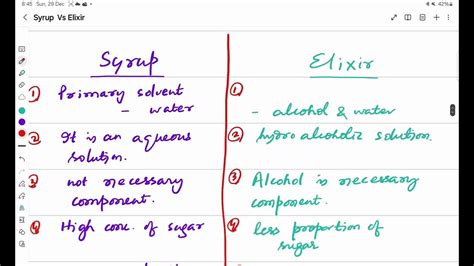 8:45 Sun, 29 Dec
42%
Syrup Vs Elixir
Syrup
Elixir
① Primary solvent
- water
①
- alcohol & water
② It is an aqueous
solution.
② hydro alcoholic solution.
③ not necessary
component.
③ Alcohol is necessary
component.
④ High conc. of sugar
④ less proportion of
sugar